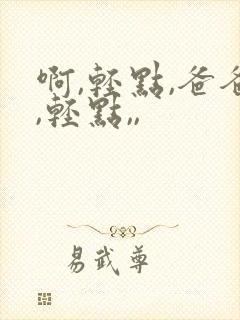 啊,轻點,爸爸
,轻點,,
易武尊